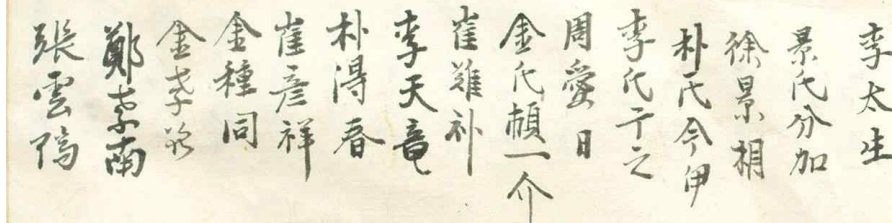 李太生
景氏分加
徐景相
朴氏今伊
李氏干之
周愛日
金氏頓一介
崔雖补
李天竜
朴淂春
崔彦祥
金種同
金孝
鄭南
張雲